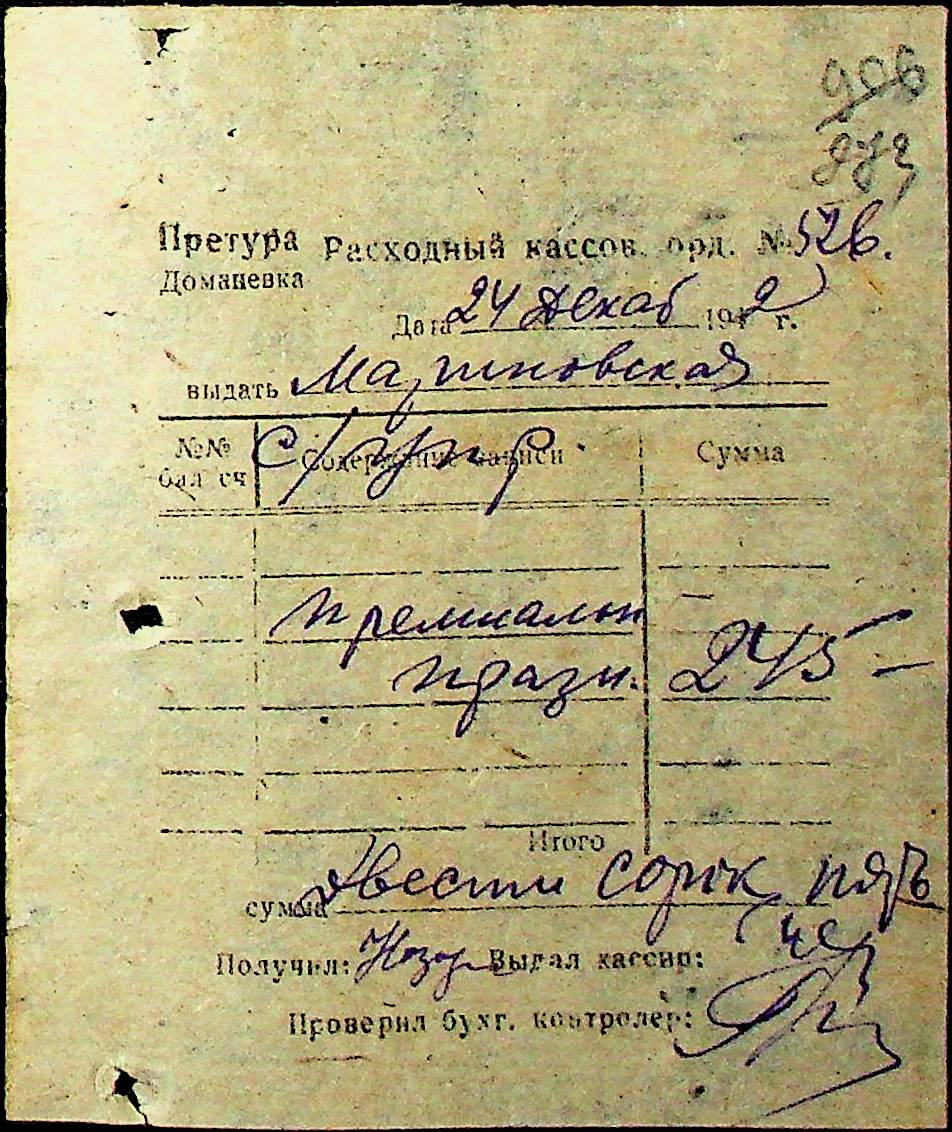 906
Претура Расходный кассов. орд. № 526.
Доманевка
Дата 24 Декаб 1942 г.
выдать Мартновская
№№ бал сч Содержание записи Сумма
С/
премиальн
празн. 245 —
Итого
сумма Двести сорок пять
Получил: Выдал кассир:
Проверил бухг. контролер: